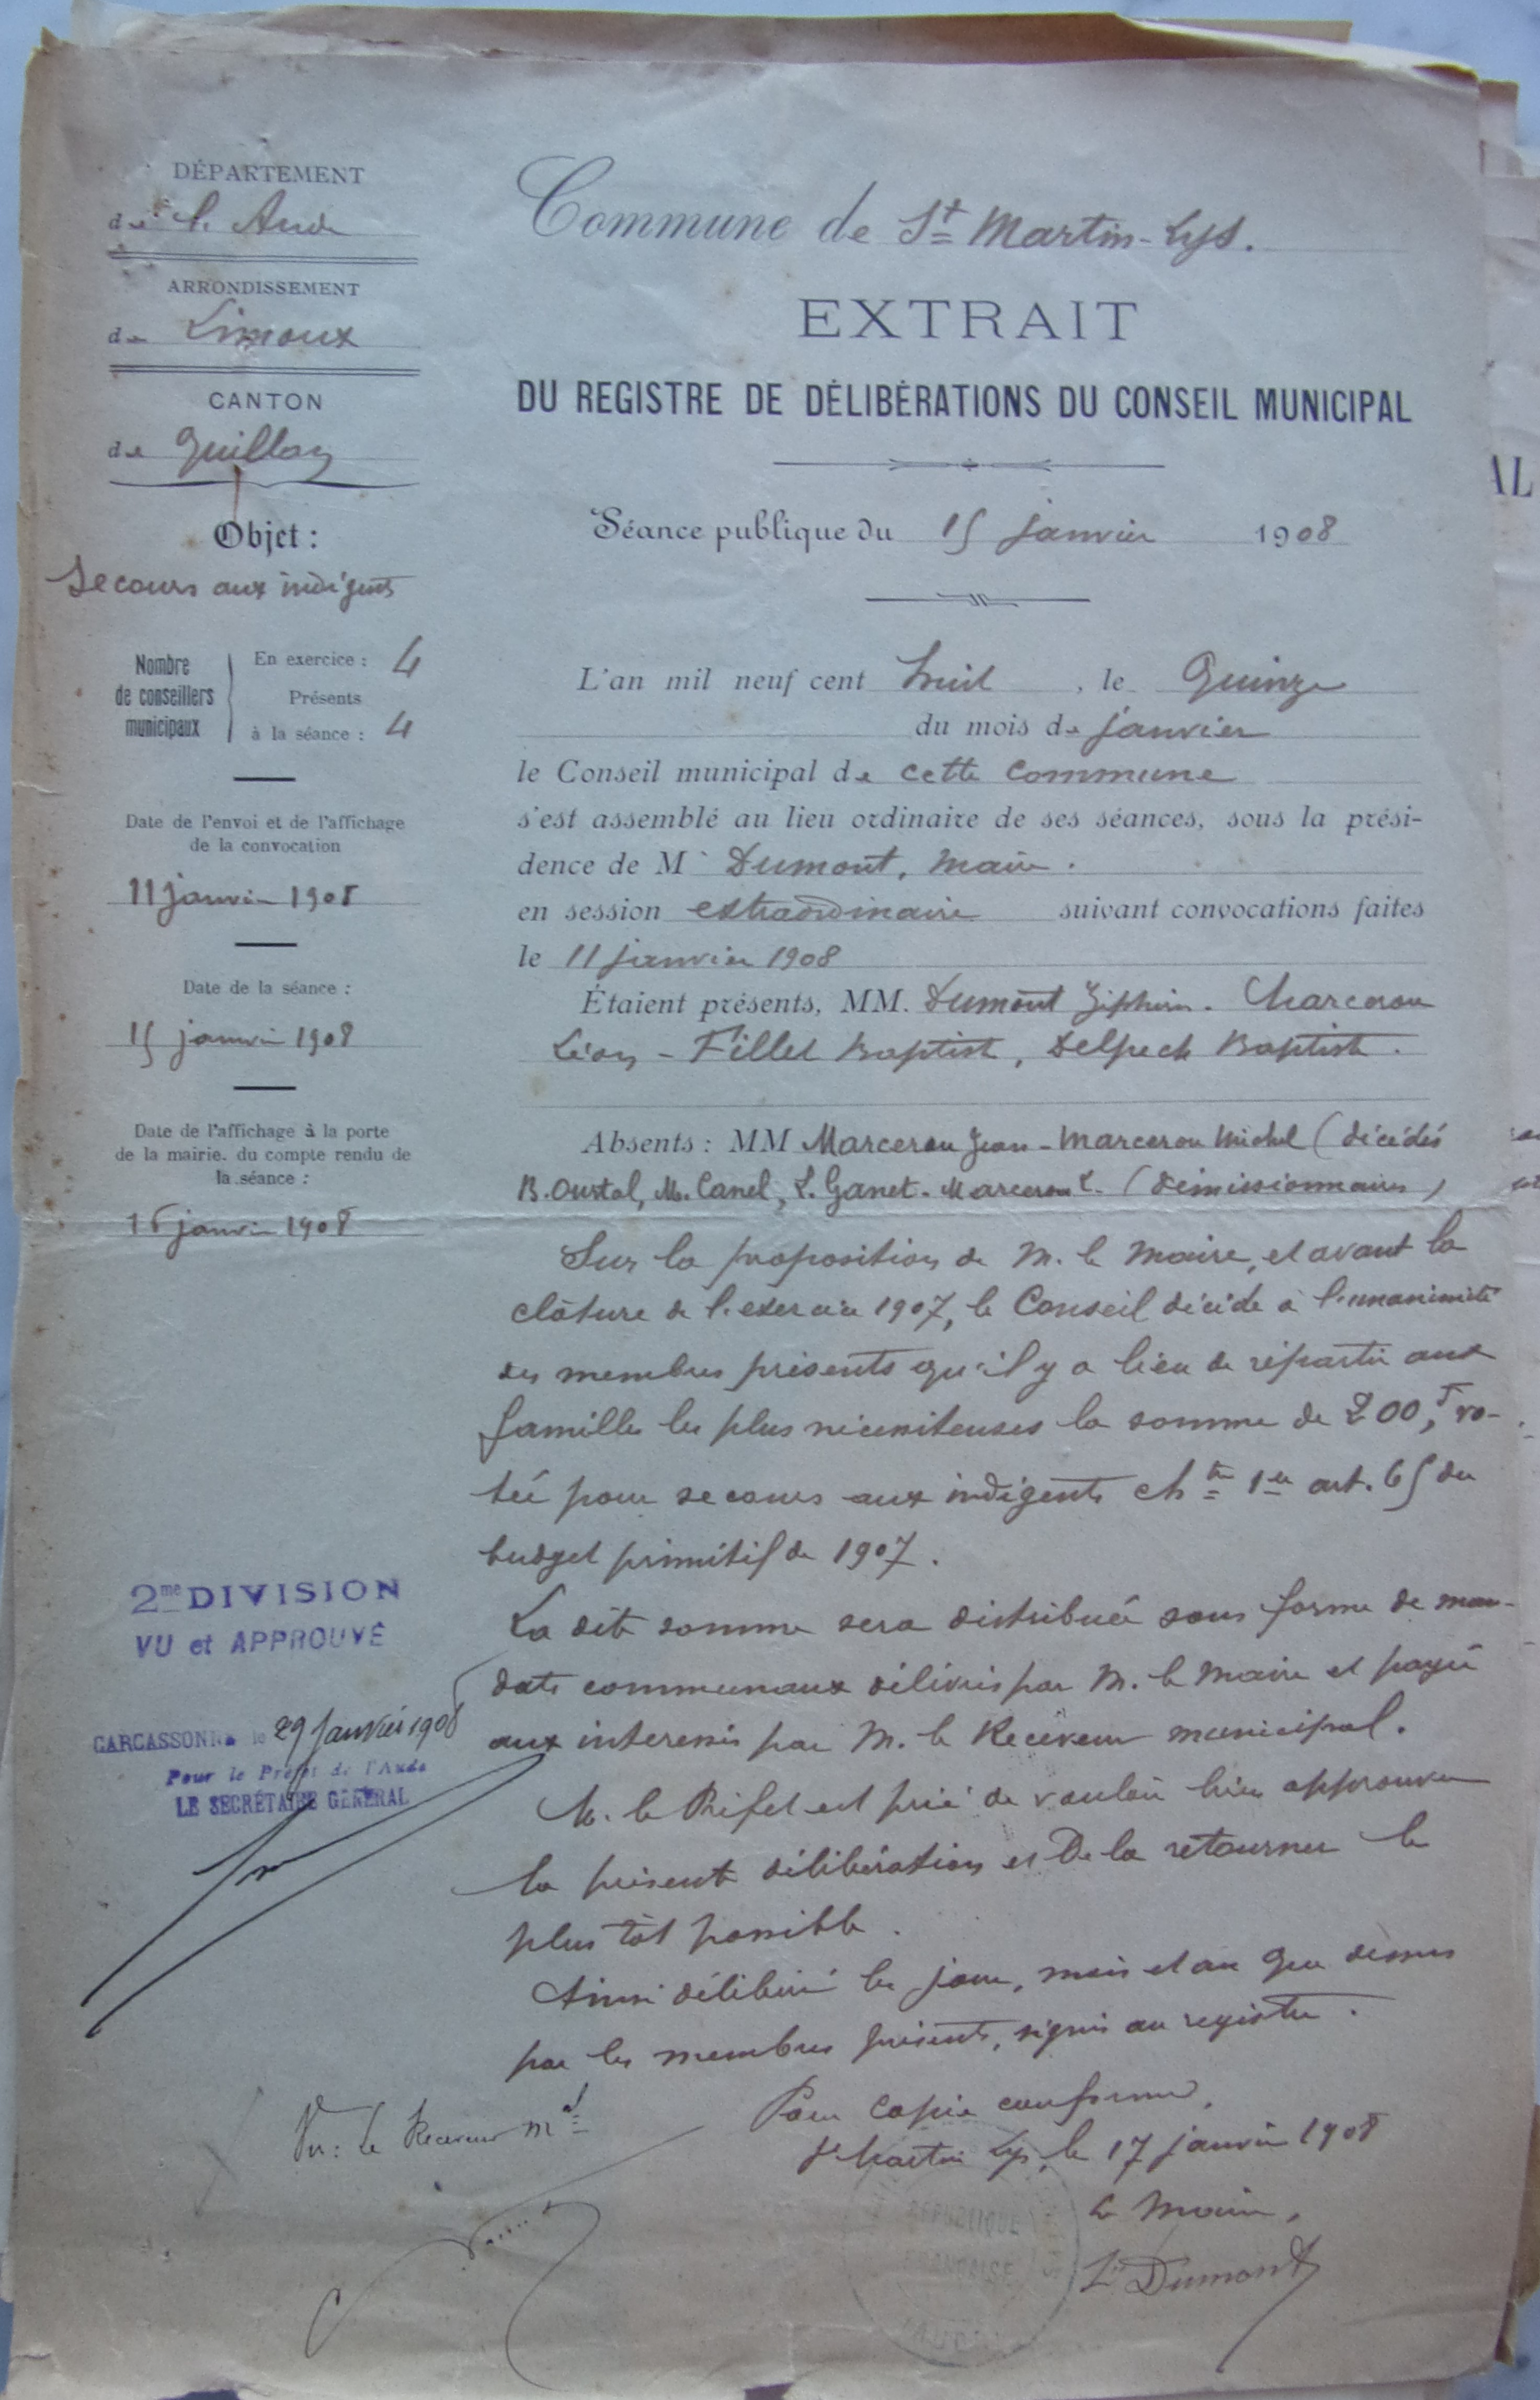 DÉPARTEMENT
de l'Aude
ARRONDISSEMENT
de Limoux
CANTON
de Quillan
Objet :
Secours aux indigents
Nombre de conseillers municipaux
En exercice : 4
Présents
à la séance : 4
Date de l'envoi et de l'affichage
de la convocation
11 janvier 1908
Date de la séance :
15 janvier 1908
Date de l'affichage à la porte
de la mairie, du compte rendu de
la séance :
16 janvier 1908
Commune de St Martin-Lys.
EXTRAIT
DU REGISTRE DE DÉLIBÉRATIONS DU CONSEIL MUNICIPAL
Séance publique du 15 janvier 1908
L'an mil neuf cent huit, le Quinze
du mois de janvier
le Conseil municipal de cette Commune
s'est assemblé au lieu ordinaire de ses séances, sous la prési-
dence de Mr Dumont, maire.
en session extraordinaire suivant convocations faites
le 11 janvier 1908
Étaient présents, MM. Dumont Zéphirin. Marcerou
Léon - Fillet Baptiste, Delpech Baptiste.
Absents : MM Marcerou Jean - Marcerou Michel (décédés
B. Oustal, M. Canel, L. Ganet. Marcerou L. (démissionnaires)
Sur la proposition de M. le Maire, et avant la
clôture de l'exercice 1907, le Conseil décide à l'unanimité
des membres présents qu'il y a lieu de répartir aux
familles les plus nécessiteuses la somme de 200f, vo-
tée pour secours aux indigents chtre 1er art. 65 du
budget primitif de 1907.
La dite somme sera distribuée sous forme de man-
dats communaux délivrés par M. le Maire et payés
aux interessés par M. le Receveur municipal.
M. le Préfet est prié de vouloir bien approuver
la présente délibération et de la retourner le
plus tôt possible.
Ainsi délibéré les jour, mois et an que dessus
par les membres présents, signés au registre.
Pour copie conforme,
St Martin Lys, le 17 janvier 1908
Le Maire,
Zin Dumont
2me DIVISION
VU et APPROUVÉ
CARCASSONNE le 29 Janvier 1908
Pour le Préfet de l'Aude
LE SECRÉTAIRE GÉNÉRAL
Vu : Le Receveur Mal
RÉPUBLIQUE
FRANÇAISE
AL